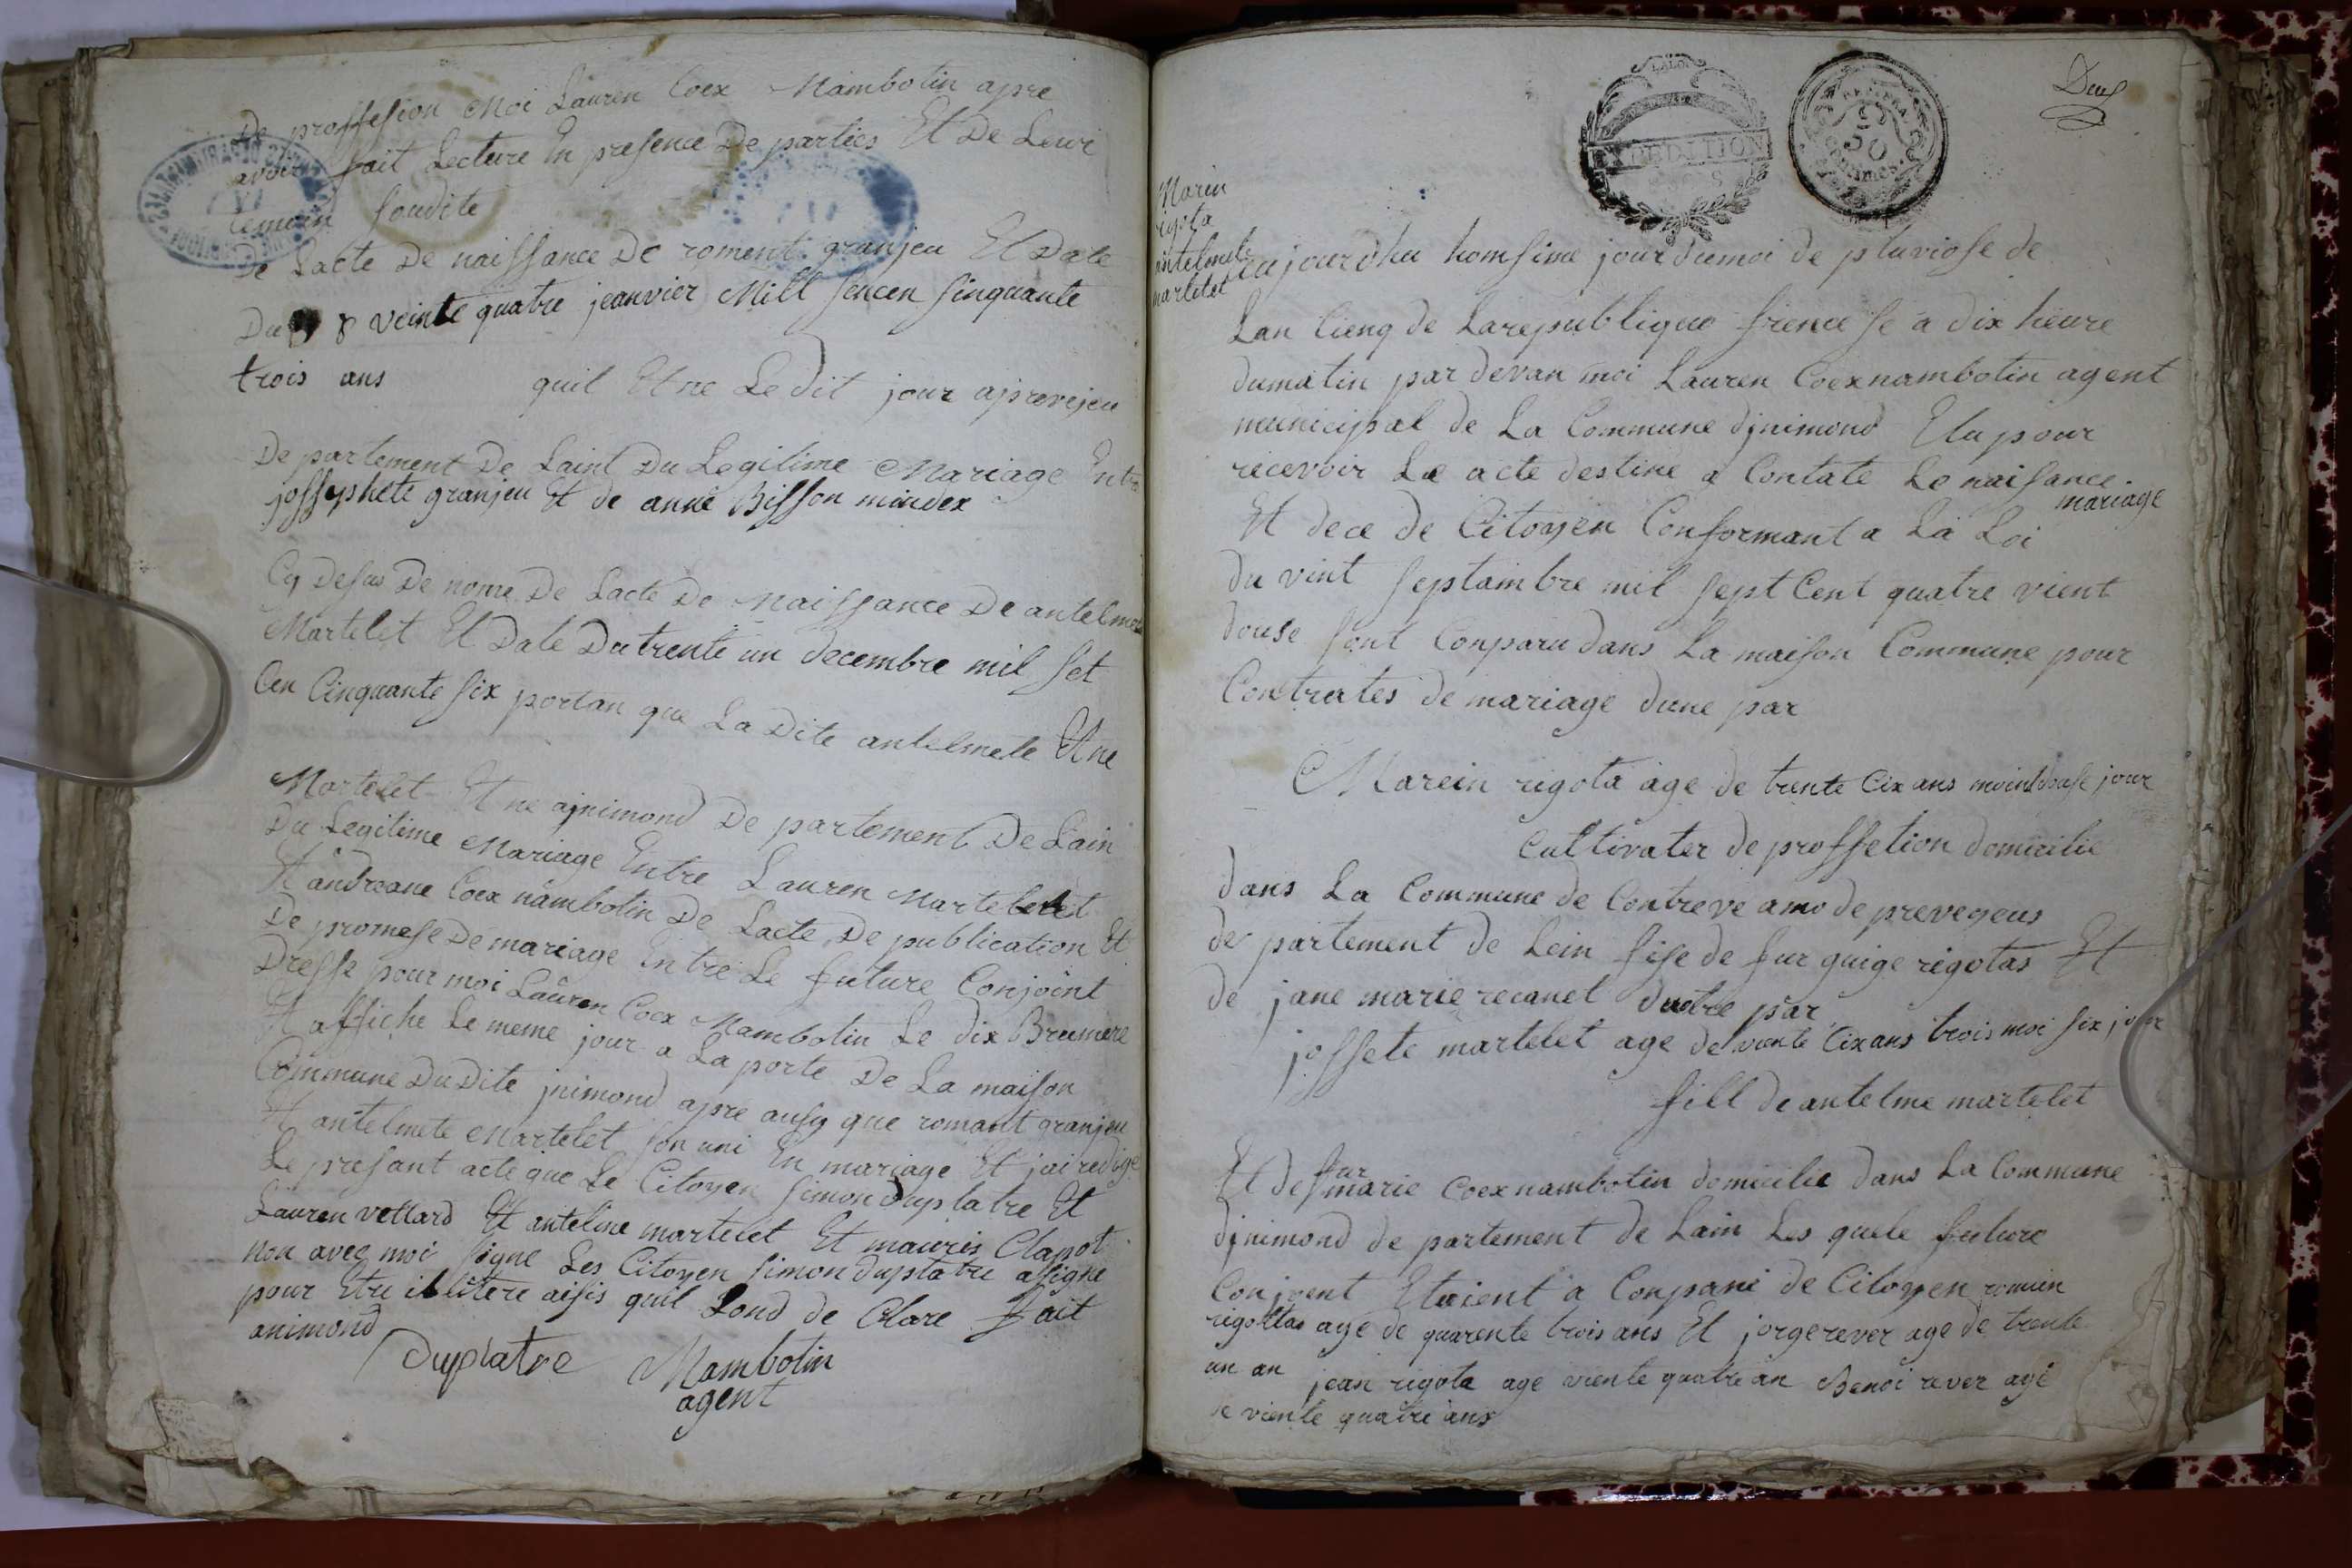 De proffesion Moi Lauren Coex Mambotin apre
avoir fait Lecture En presence De parties Et De Leur
temoin soudite
De Lacte De naissance De roment granjeu Et Date
Du 8 veinte quatre jeanvier Mill sencen sinquante
trois ans quil Et ne Le dit jour aprevejeu
De partement De Laint Du Legitime Mariage Entre
jossephete granjeu Et de anne Bisson mindex
Cy Desus De nome De Lacte De Naissance De antelme
Martelet Et Date Du trente un decembre mil set
Cen Cinquante six portan que La Dite antelmete Et ne
Martelet Et ne ajnimond De partement De Lain
Du Legitime Mariage Entre Lauren Martelet
Et andreane Coex nambotin De Lacte De publication Et
De promese De mariage Entre Le future Conjoint
Dresse pour moi Lauren Coex Mambotin Le dix Brumere
Et affiche Le meme jour a La porte De La maison
Commune Du Dite jnimond apre ausy que romant granjeu
Et antelmete Martelet son uni En mariage Et jai redige
Le presant acte que Le Citoyen simon Duplatre Et
Lauren vettard Et antelme martelet Et mauris Clapot
non avec moi signe Les Citoyen simon duplatre a signe
pour Etre illitere aisis quil Lond de Clare fait
animond
Duplatre Mambotin
agent
LA LOI
EXPEDITION
50
CENTIMES
Deux
Marin
rigota
antelmete
martelet
aujourdhu homsime jour dumoi de pluviose de
Lan Cienq de Larepublique frencese a dix heure
dumatin par devan moi Lauren Coexnambotin agent
municipal de La Commune djnimond Elu pour
recevoir Le acte destine a Contate Le naisance
mariage
Et dece de Citoyen Conformant a La Loi
du vint septaimbre mil sept Cent quatre vient
douse sont Conparu dans La maison Commune pour
Contrates de mariage dune par
Marein rigota age de trente Cix ans moint douse jour
Cultivater de proffetion domicilie
dans La Commune de Contreve amo de prevegeus
de partement de Lein fise de fur guige rigotas Et
de jane marie recanet dautre par
jossete martelet age de viente Cix ans trois moi six jour
fill de antelme martelet
Et de fur marie Coexnambotin domicilie dans La Commune
djnimond de partement de Lain Les quele future
Conjoent Etaient a Conpani de Citoyen romain
rigottas age de quarente trois ans Et jorge rever age de trente
un an jean rigota age viente quatre an Benoi rever age
de viente quatre ans